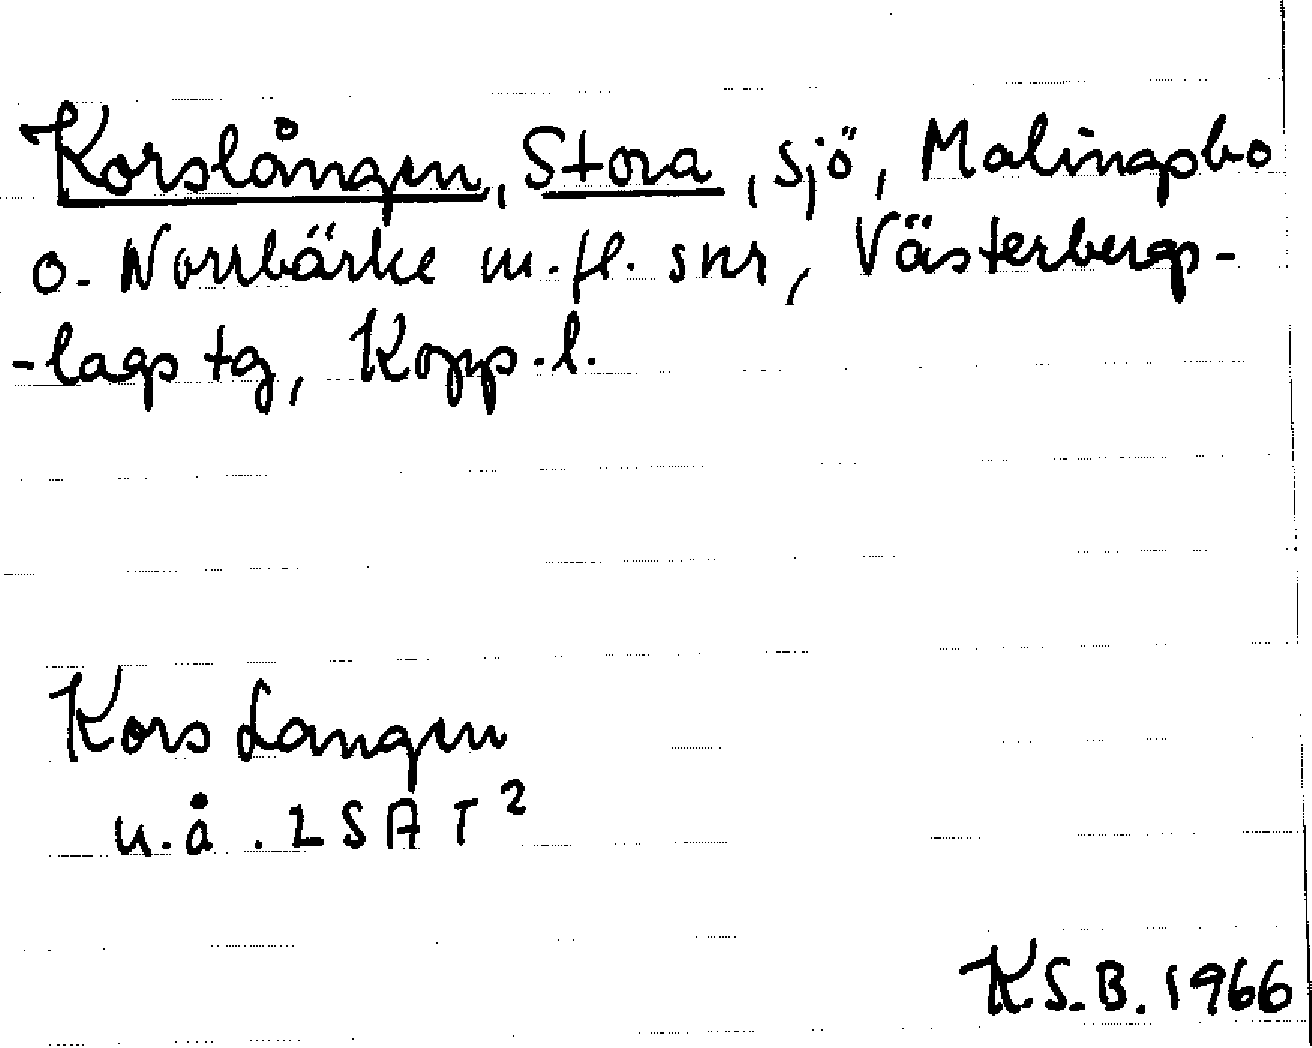 Korslången, Stora, sjö, Malingsbo
o. Norrbärke m.fl. snr, Västerbergs-
-lags tg, Kopp.l.
Kors Langen
u.å. LSA T²
K S.B. 1966